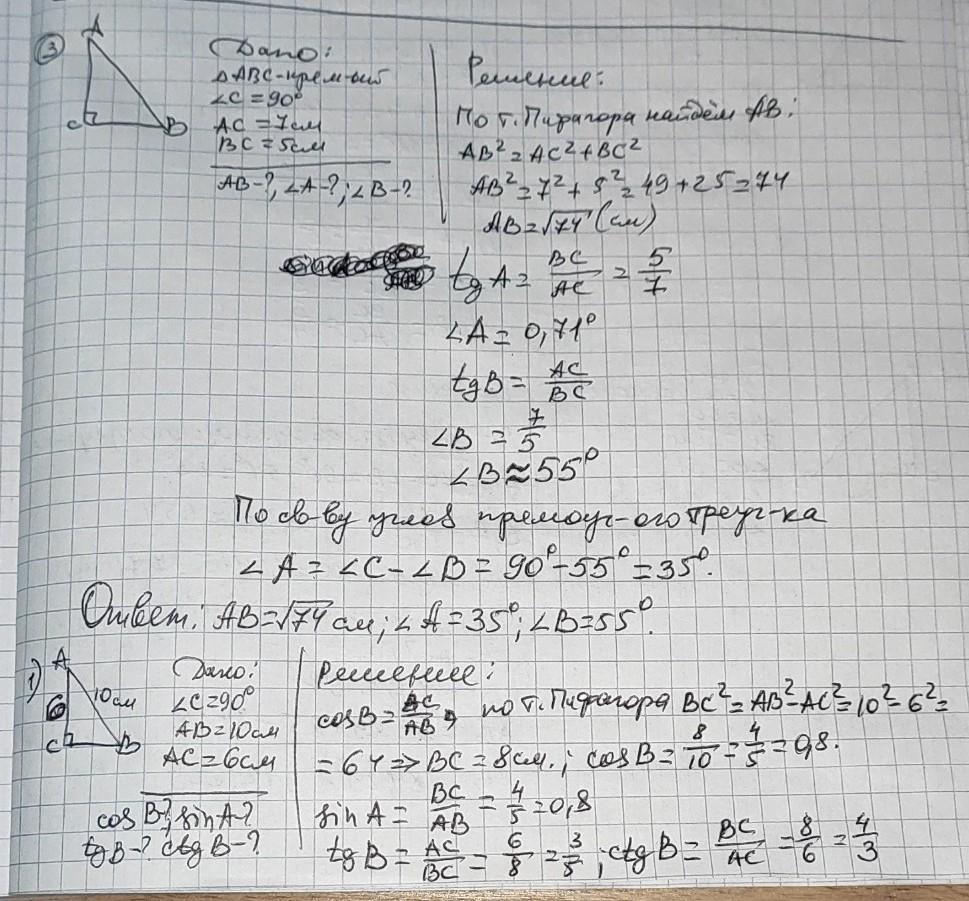 ③ A
C B
Дано:
△ABC-прям-ый
∠C = 90°
AC = 7см
BC = 5см
AB-?, ∠A-?; ∠B-?
Решение:
По т. Пифагора найдём AB:
AB² = AC² + BC²
AB² = 7² + 5² = 49 + 25 = 74
AB = √74 (см)
tg A = BC/AC = 5/7
∠A = 0,71°
tg B = AC/BC
∠B = 7/5
∠B ≈ 55°
По св-ву углов прямоуг-ого треуг-ка
∠A = ∠C - ∠B = 90° - 55° = 35°.
Ответ: AB = √74 см; ∠A = 35°; ∠B = 55°.
1) A
6 10см
C B
Дано:
∠C = 90°
AB = 10см
AC = 6см
cos B?, sin A-?
tg B-? ctg B-?
Решение:
cos B = AC/AB, по т. Пифагора BC² = AB² - AC² = 10² - 6² =
= 64 ⇒ BC = 8см.; cos B = 8/10 = 4/5 = 0,8.
sin A = BC/AB = 4/5 = 0,8
tg B = AC/BC = 6/8 = 3/5; ctg B = BC/AC = 8/6 = 4/3